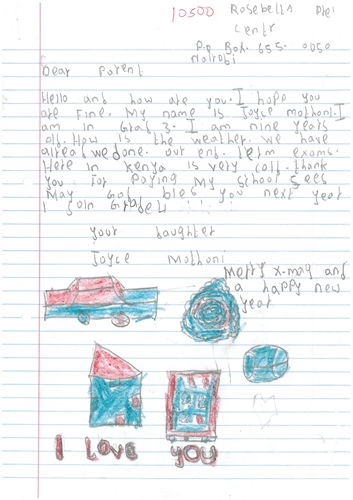 10500 Rosebella Pre
Centr
P.o Box. 655. 0050
Nairobi
Dear Parent
Hello and how are you. I hope you
are Fine. My name is Joyce Mothoni. I
am in Grad 3. I am nine years
old. How is the weather. we have
alread wedone. our end. term exams.
Here in kenya is very cold. thank
you For paying My school Sees
May God bles you next year
I join Grade 4
your daughter
Joyce Mothoni
Merry x-may and
a happy new
year
I LOVE YOU